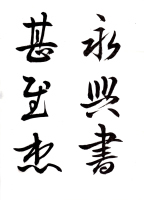 永興書
甚至杰